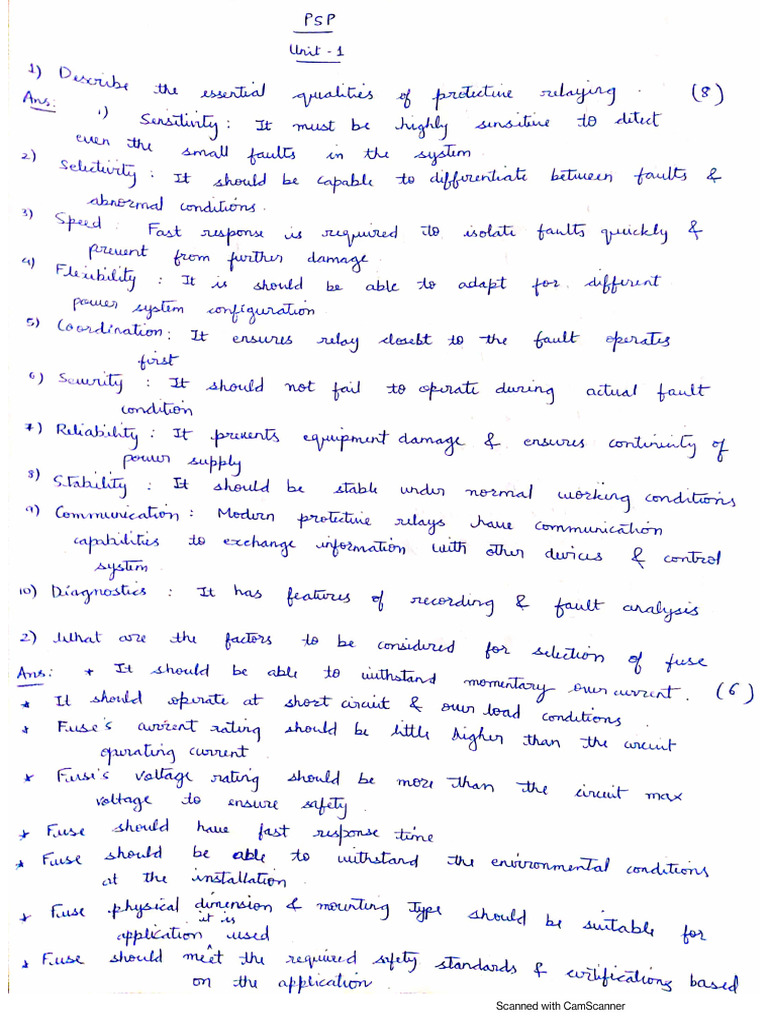 PSP
Unit - 1
1) Describe the essential qualities of protective relaying. (8)
Ans: 1) Sensitivity : It must be highly sensitive to detect
even the small faults in the system
2) Selectivity : It should be capable to differentiate between faults &
abnormal conditions.
3) Speed : Fast response is required to isolate faults quickly &
prevent from further damage.
4) Flexibility : It is should be able to adapt for different
power system configuration
5) Coordination : It ensures relay closebt to the fault operates
first
6) Security : It should not fail to operate during actual fault
condition
7) Reliability : It prevents equipment damage & ensures continuity of
power supply
8) Stability : It should be stable under normal working conditions
9) Communication : Modern protective relays have communication
capabilities to exchange information with other devices & control
system.
10) Diagnostics : It has features of recording & fault analysis
2) What are the factors to be considered for selection of fuse
Ans: * It should be able to withstand momentary over current. (6)
* It should operate at short circuit & over load conditions.
* Fuse's current rating should be little higher than the circuit
operating current.
* Fuse's voltage rating should be more than the circuit max
voltage to ensure safety.
* Fuse should have fast response time
* Fuse should be able to withstand the environmental conditions
at the installation.
* Fuse physical dimension & mounting Type should be suitable for
application it is used
* Fuse should meet the required safety standards & certifications based
on the application.
Scanned with CamScanner